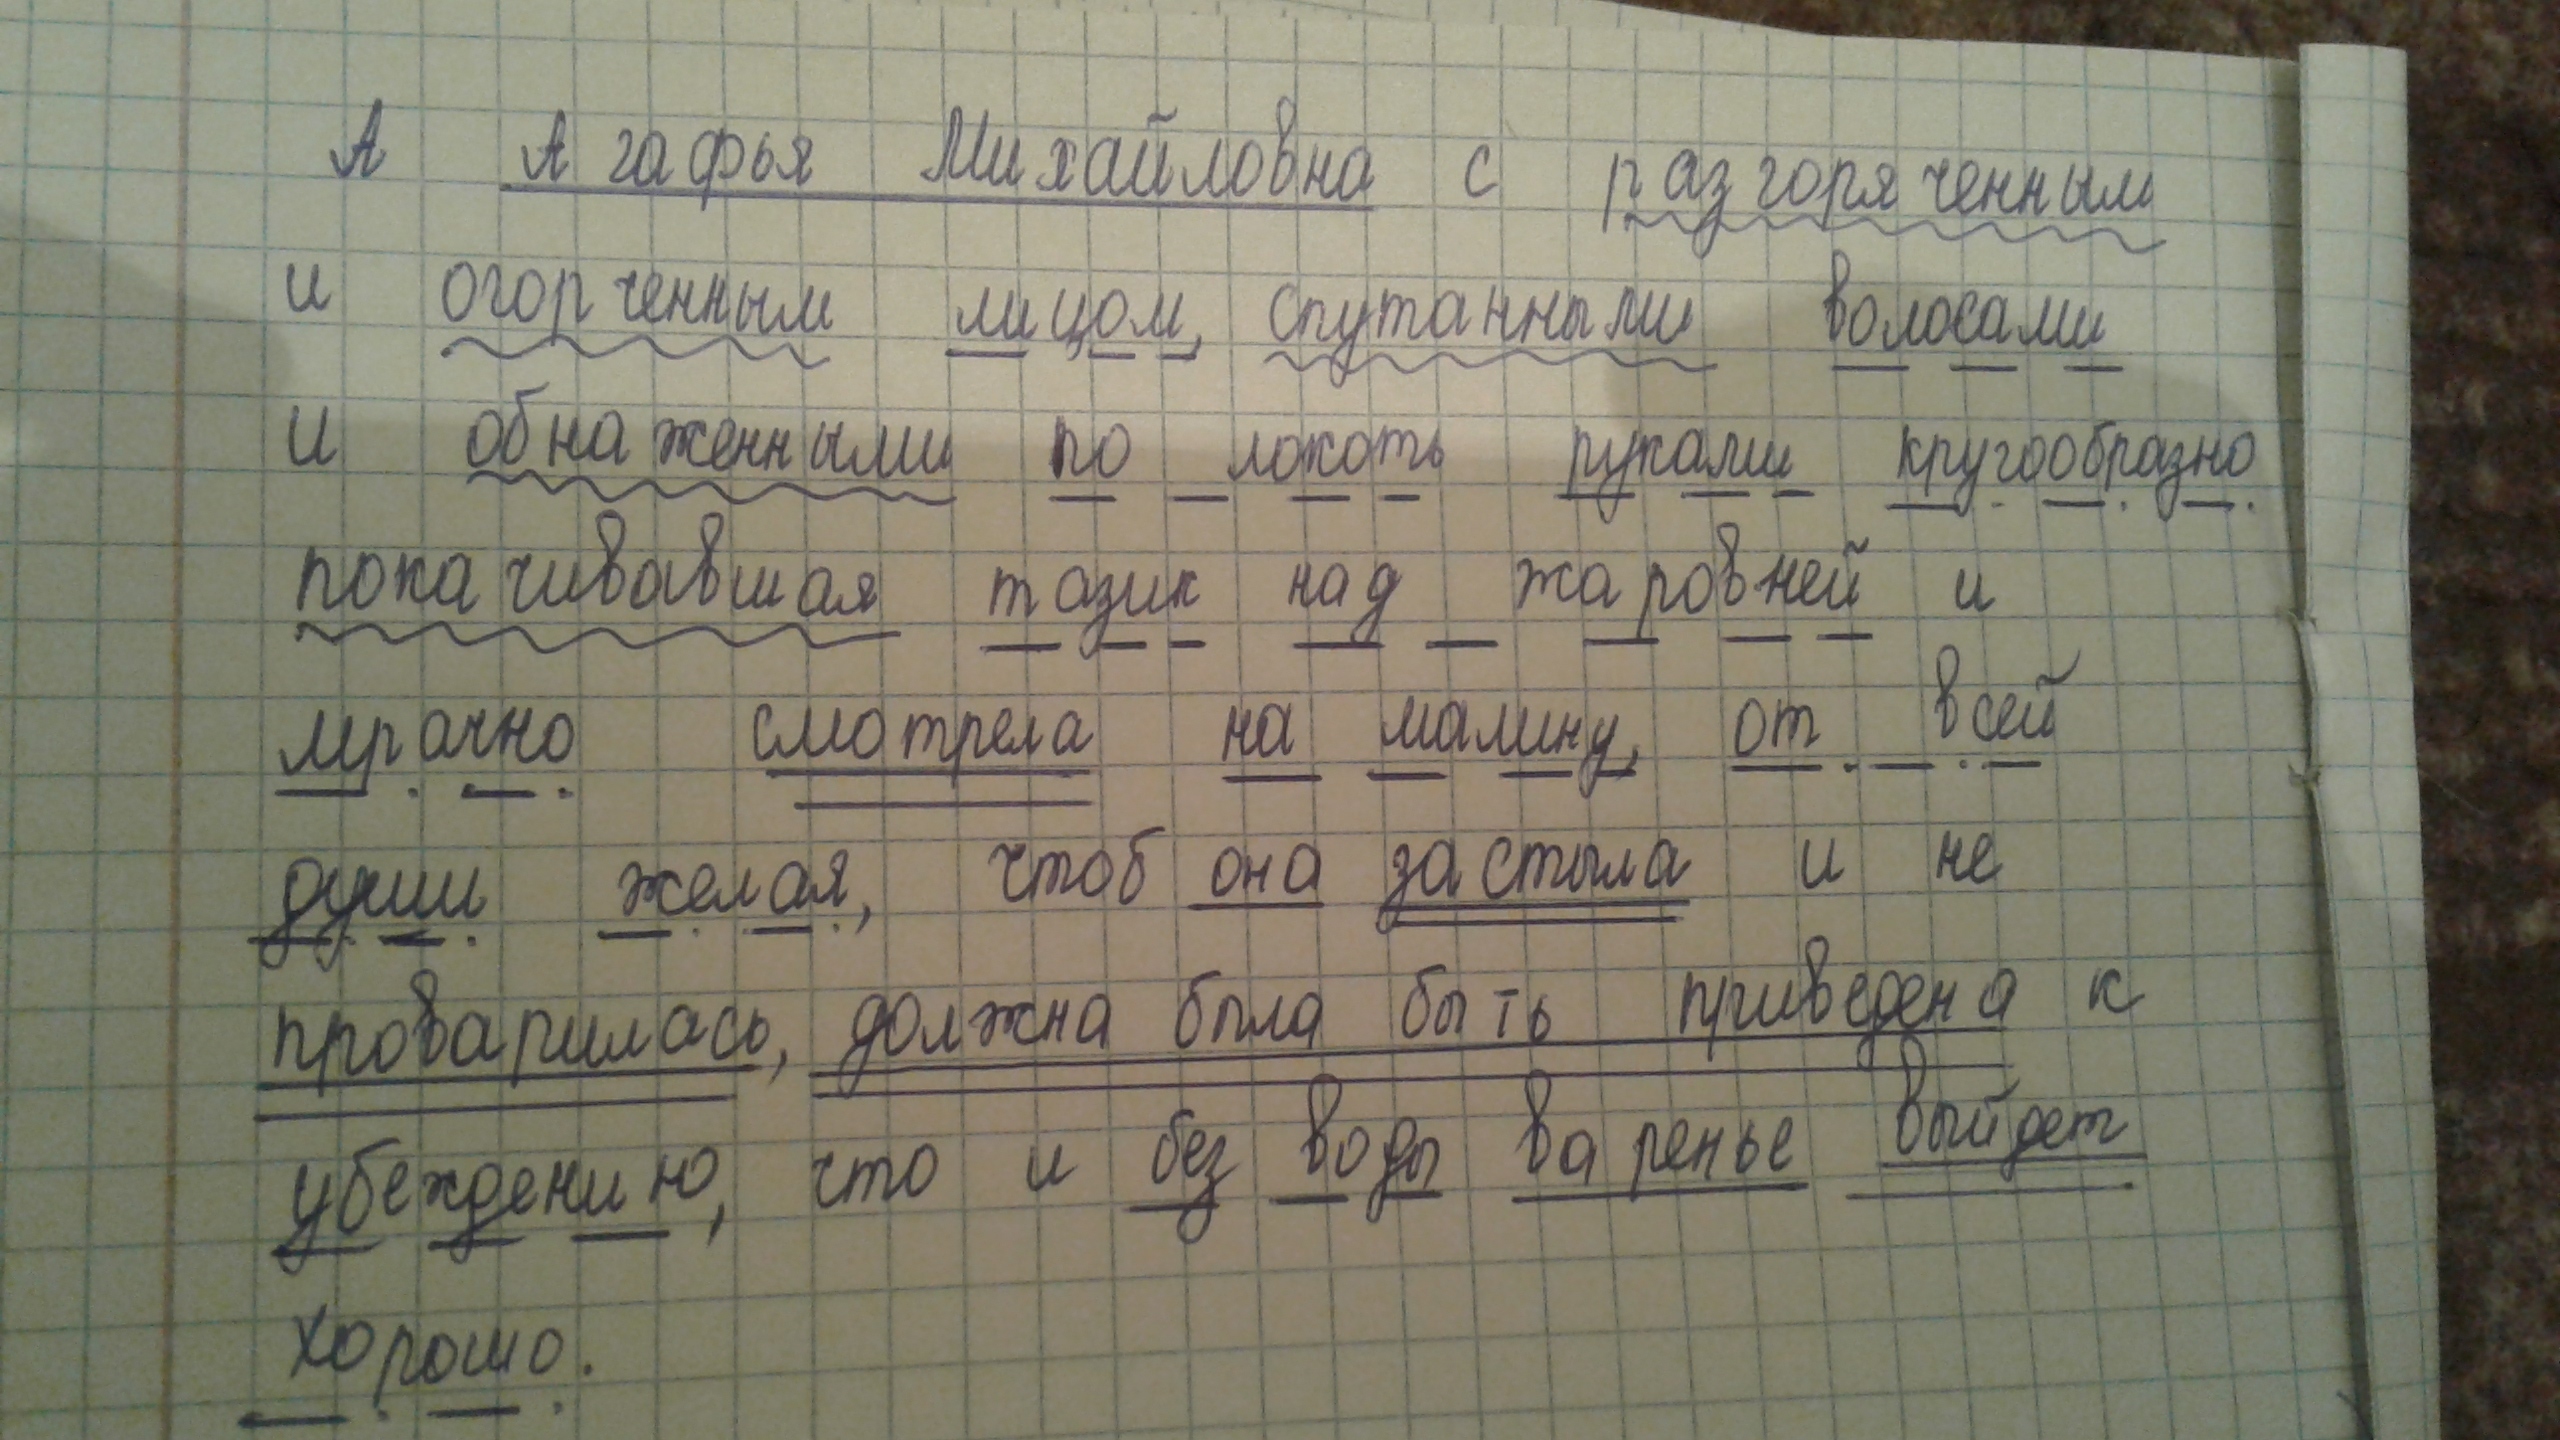 А Агафья Михайловна с разгоряченным
и огорченным лицом, спутанными волосами
и обнаженными по локоть руками кругообразно
покачивавшая тазик над жаровней и
мрачно смотрела на малину, от всей
души желая, чтоб она застыла и не
проварилась, должна была быть приведена к
убеждению, что и без воды варенье выйдет
хорошо.